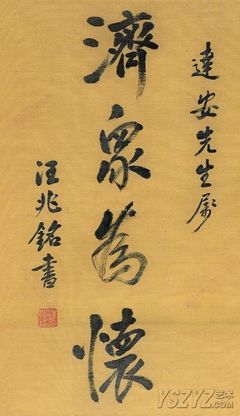 達安先生屬
濟眾為懷
汪兆銘書
YSZYZ艺术
.com